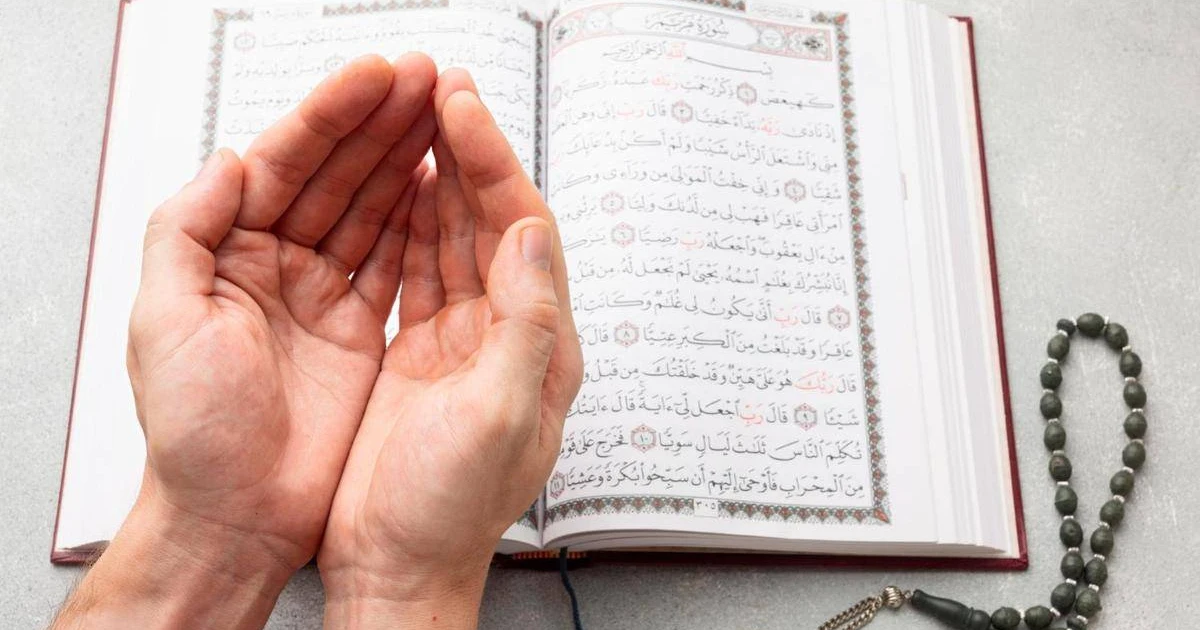 سُورَةُ مَرْيَمَ
بِسْمِ ٱللَّهِ ٱلرَّحْمَٰنِ ٱلرَّحِيمِ
كٓهيعٓصٓ ١ ذِكْرُ رَحْمَتِ رَبِّكَ عَبْدَهُۥ زَكَرِيَّآ
إِذْ نَادَىٰ رَبَّهُۥ نِدَآءً خَفِيًّا ٣ قَالَ رَبِّ إِنِّى وَهَنَ ٱلْعَظْمُ
مِنِّى وَٱشْتَعَلَ ٱلرَّأْسُ شَيْبًا وَلَمْ أَكُنۢ بِدُعَآئِكَ رَبِّ
شَقِيًّا ٤ وَإِنِّى خِفْتُ ٱلْمَوَٰلِىَ مِن وَرَآءِى وَكَانَتِ
ٱمْرَأَتِى عَاقِرًا فَهَبْ لِى مِن لَّدُنكَ وَلِيًّا ٥ يَرِثُنِى وَيَرِثُ
مِنْ ءَالِ يَعْقُوبَ وَٱجْعَلْهُ رَبِّ رَضِيًّا ٦
إِنَّا نُبَشِّرُكَ بِغُلَٰمٍ ٱسْمُهُۥ يَحْيَىٰ لَمْ نَجْعَل لَّهُۥ مِن قَبْلُ
٧ قَالَ رَبِّ أَنَّىٰ يَكُونُ لِى غُلَٰمٌ وَكَانَتِ
عَاقِرًا وَقَدْ بَلَغْتُ مِنَ ٱلْكِبَرِ عِتِيًّا ٨ قَالَ
قَالَ رَبُّكَ هُوَ عَلَىَّ هَيِّنٌ وَقَدْ خَلَقْتُكَ مِن قَبْلُ
شَيْـًٔا ٩ قَالَ رَبِّ ٱجْعَل لِّىٓ ءَايَةً قَالَ ءَايَتُكَ
تُكَلِّمَ ٱلنَّاسَ ثَلَٰثَ لَيَالٍ سَوِيًّا ١٠ فَخَرَجَ عَلَىٰ
مِنَ ٱلْمِحْرَابِ فَأَوْحَىٰٓ إِلَيْهِمْ أَن سَبِّحُوا۟ بُكْرَةً وَعَشِيًّا ١١
٣٠٥
خُذِ ٱلْكِتَٰبَ بِقُوَّةٍ وَءَاتَيْنَٰهُ ٱلْحُكْمَ صَبِيًّا ١٢
وَحَنَانًا مِّن وَبَرًّۢا بِوَٰلِدَيْهِ وَلَمْ
يَكُن وَيَوْمَ يَمُوتُ